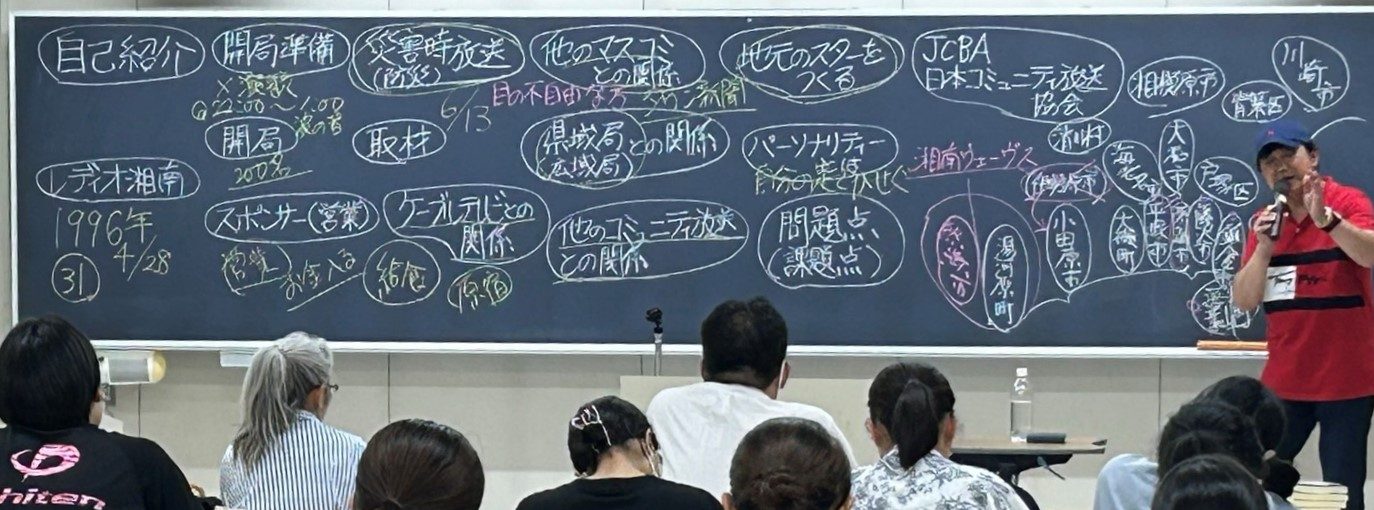 自己紹介
開局準備
災害時放送
(防災)
他のマスコミ
との関係
地元のスターを
つくる
JCBA
日本コミュニティ放送
協会
相模原市
青葉区
川崎市
22:00～1:00
波の音
6/13
目の不自由な方
開局
200名
取材
県域局
(広域局)
との関係
パーソナリティー
湘南ウェーブス
清川村
大和市
戸塚区
レディオ湘南
1996年
4/28
31
スポンサー(営業)
営業
お金入る
ケーブルテレビとの
関係
給食
原宿
他のコミュニティ放送
との関係
問題点
(課題点)
湯河原町
小田原市
大磯町
平塚市
hiten